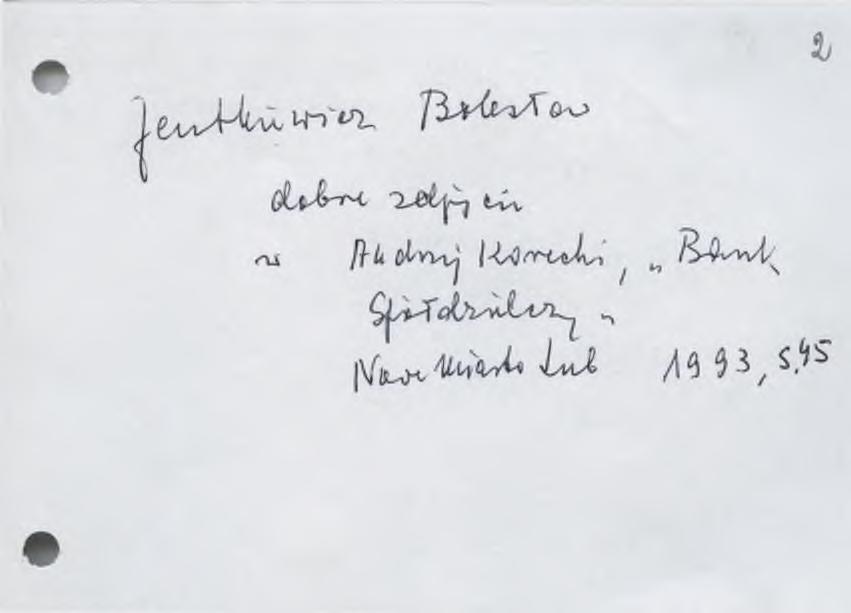 2
Jentkiewicz Bolesław
dobre zdjęcie
w Andrzej Korecki, „Bank
Spółdzielczy"
Nowe Miasto Lub 1993, s.45